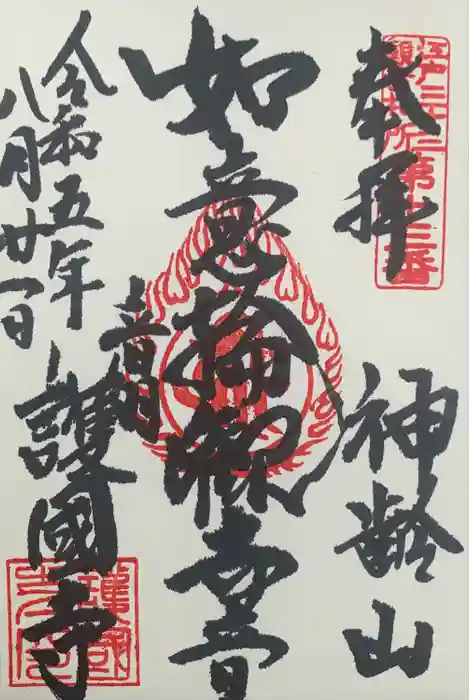 奉拝
江戸三十三
観音札所第十三番
神齢山
如意輪観世音
音羽
護國寺
令和五年
八月廿一日